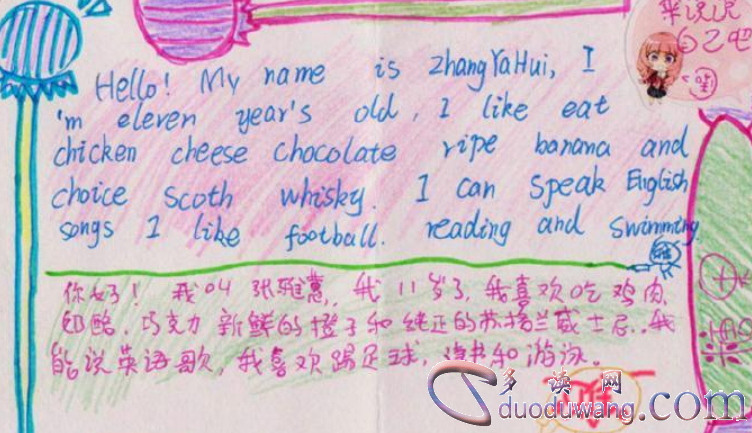 来说说
自己吧
Hello! My name is zhangYaHui, I
'm eleven year's old, I like eat
chicken cheese chocolate ripe banana and
choice scoth whisky. I can speak English
songs I like football. reading and swimming
你好！我叫 张雅慧, 我 11 岁了, 我喜欢吃 鸡肉
奶酪. 巧克力 新鲜的橙子和 纯正的苏格兰威士忌. 我
能说英语歌, 我喜欢踢足球, 读书和游泳.
多读网
duoduwang.com